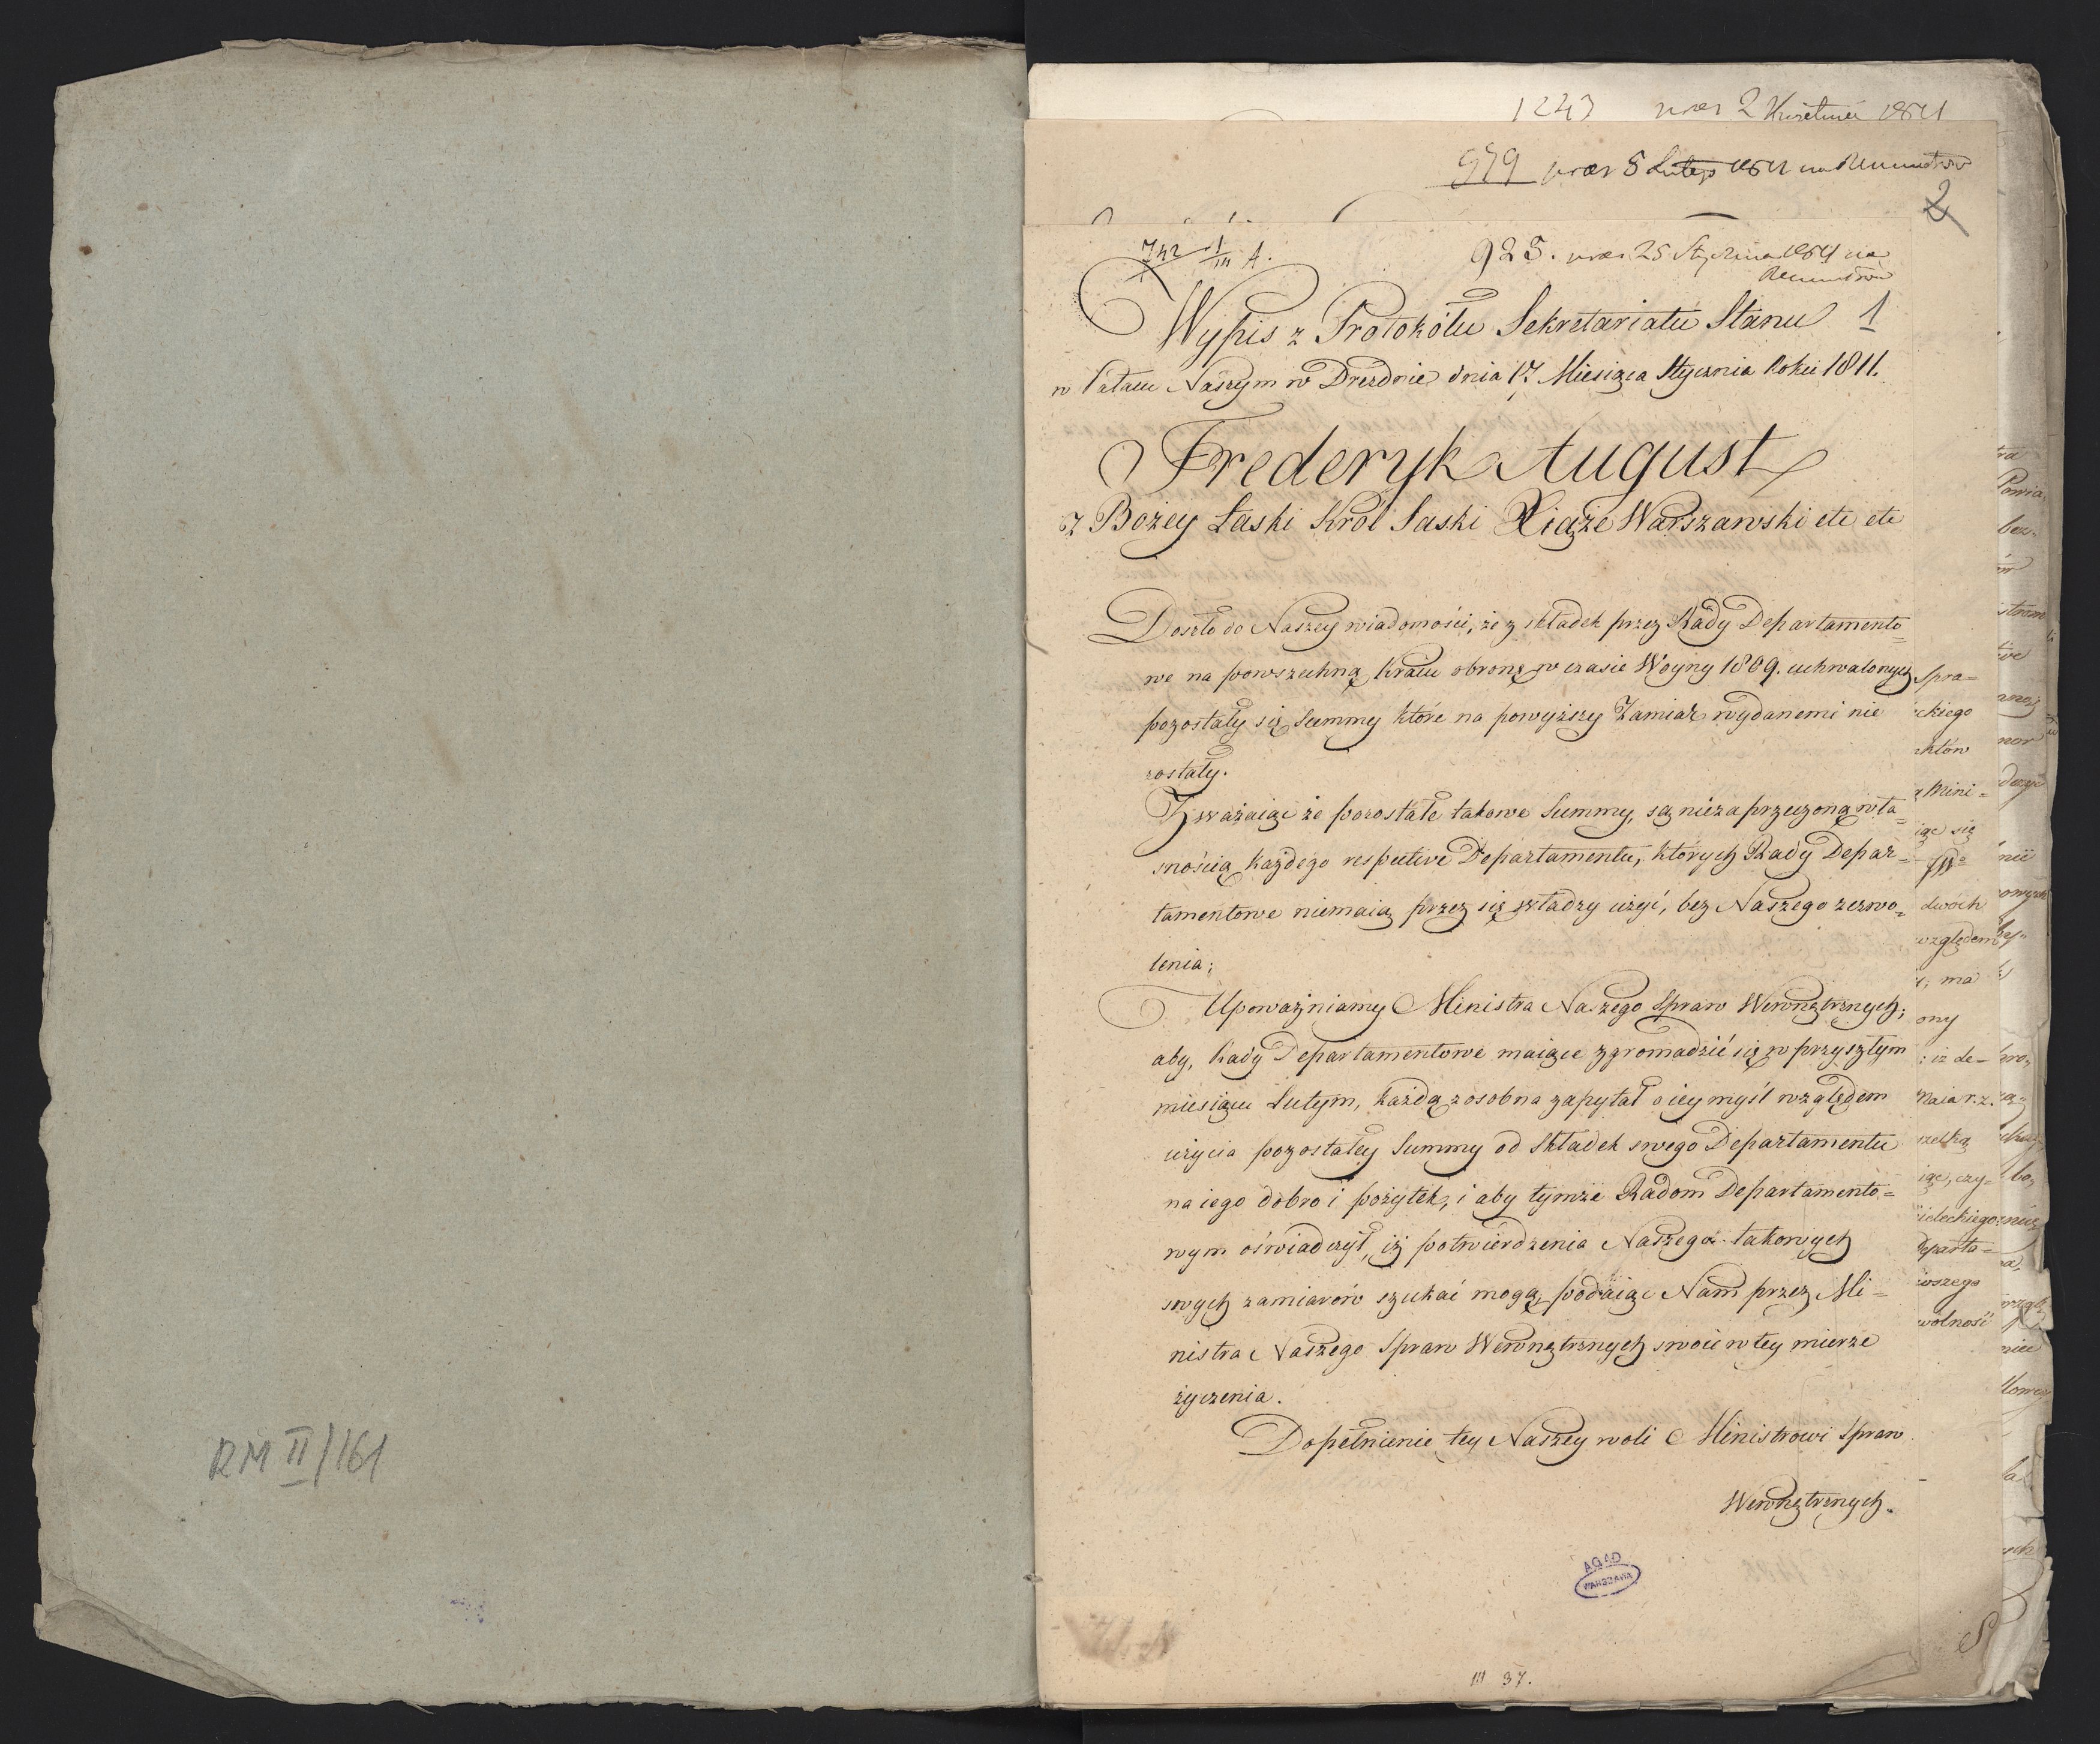 RM II/161
1243 2 Kwietnia 1811
979 5 Lutego 1811 na
2
925. 25 Stycznia 1811 na
Wypis z Protokółu Sekretariatu Stanu 1
w Pałacu Naszym w Dreźdnie dnia 17. Miesiąca Stycznia Roku 1811.
Frederyk August
z Bożey Łaski Król Saski Xiąże Warszawski etc etc
Doszło do Naszey wiadomości, że z składek przez Rady Departamento=
we na powszechną Kraiu obronę w czasie Woyny 1809. uchwalonych
pozostały się Summy które na powyższy Zamiar wydanemi nie
zostały.
Zważaiąc że pozostałe takowe Summy, są niezaprzeczoną wła=
snością każdego respective Departamentu, których Rady Depar=
tamentowe niemaią przez się władzy użyć, bez Naszego zezwo=
lenia;
Upoważniamy Ministra Naszego Spraw Wewnętrznych;
aby, Rady Departamentowe maiące zgromadzić się w przyszłym
miesiącu Lutym, każdą zosobna zapytał o iey myśl względem
użycia pozostałey Summy od Składek swego Departamentu
na iego dobro i pożytek, i aby tymże Radom Departamento=
wym oświadczył, iż potwierdzenia Naszego takowych
swych zamiarów szukać mogą, podaiąc Nam przez Mi=
nistra Naszego Spraw Wewnętrznych swoie w tey mierze
życzenia.
Dopełnienie tey Naszey woli Ministrowi Spraw
Wewnętrznych.
AGAD
WARSZAWA
37.